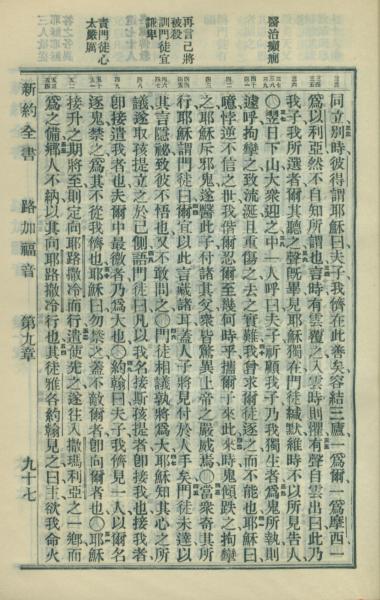 醫治癲癇
再言己將
被殺
訓門徒宜
謙卑
責門徒心
太嚴厲
同立別時彼得謂耶穌曰夫子我儕在此善矣容結三廬一爲爾一爲摩西一
爲以利亞然不自知所謂也言時有雲覆之入雲時則懼有聲自雲出曰此乃
我子我所選者爾其聽之聲旣畢見耶穌獨在門徒緘默維時不以所見告人
〇翌日下山大衆迎之中一人呼曰夫子祈顧我子乃我獨生者爲鬼所執則
遽呼拘攣之致流涎且重傷之去之實難我曾求爾徒逐之而不能也耶穌曰
噫悖逆不信之世我偕爾忍爾至幾何時乎攜爾子來此來時鬼傾跌之拘攣
之耶穌斥邪鬼遂醫此子付諸其父衆皆驚異上帝之嚴威焉〇當衆奇其所
行耶穌謂門徒曰爾宜以此言藏諸耳蓋人子將見付於人手矣門徒未達以
其言隱祕致彼不悟也又不敢問之〇門徒相議孰將爲大耶穌知其心之所
議遂取孩提立之於己側語門徒曰凡以我名接斯孩提者卽接我也接我者
卽接遣我者也夫爾中最微者乃爲大也〇約翰曰夫子我儕見一人以爾名
逐鬼禁之爲其不從我儕也耶穌曰勿禁之蓋不敵爾者卽向爾者也〇耶穌
接升之期將至則定向耶路撒冷而行遣使先之遂往入撒瑪利亞之一鄉而
爲之備鄉人不納以其向耶路撒冷行也其徒雅各約翰見之曰主欲我命火
新約全書
路加福音
第九章
九十七